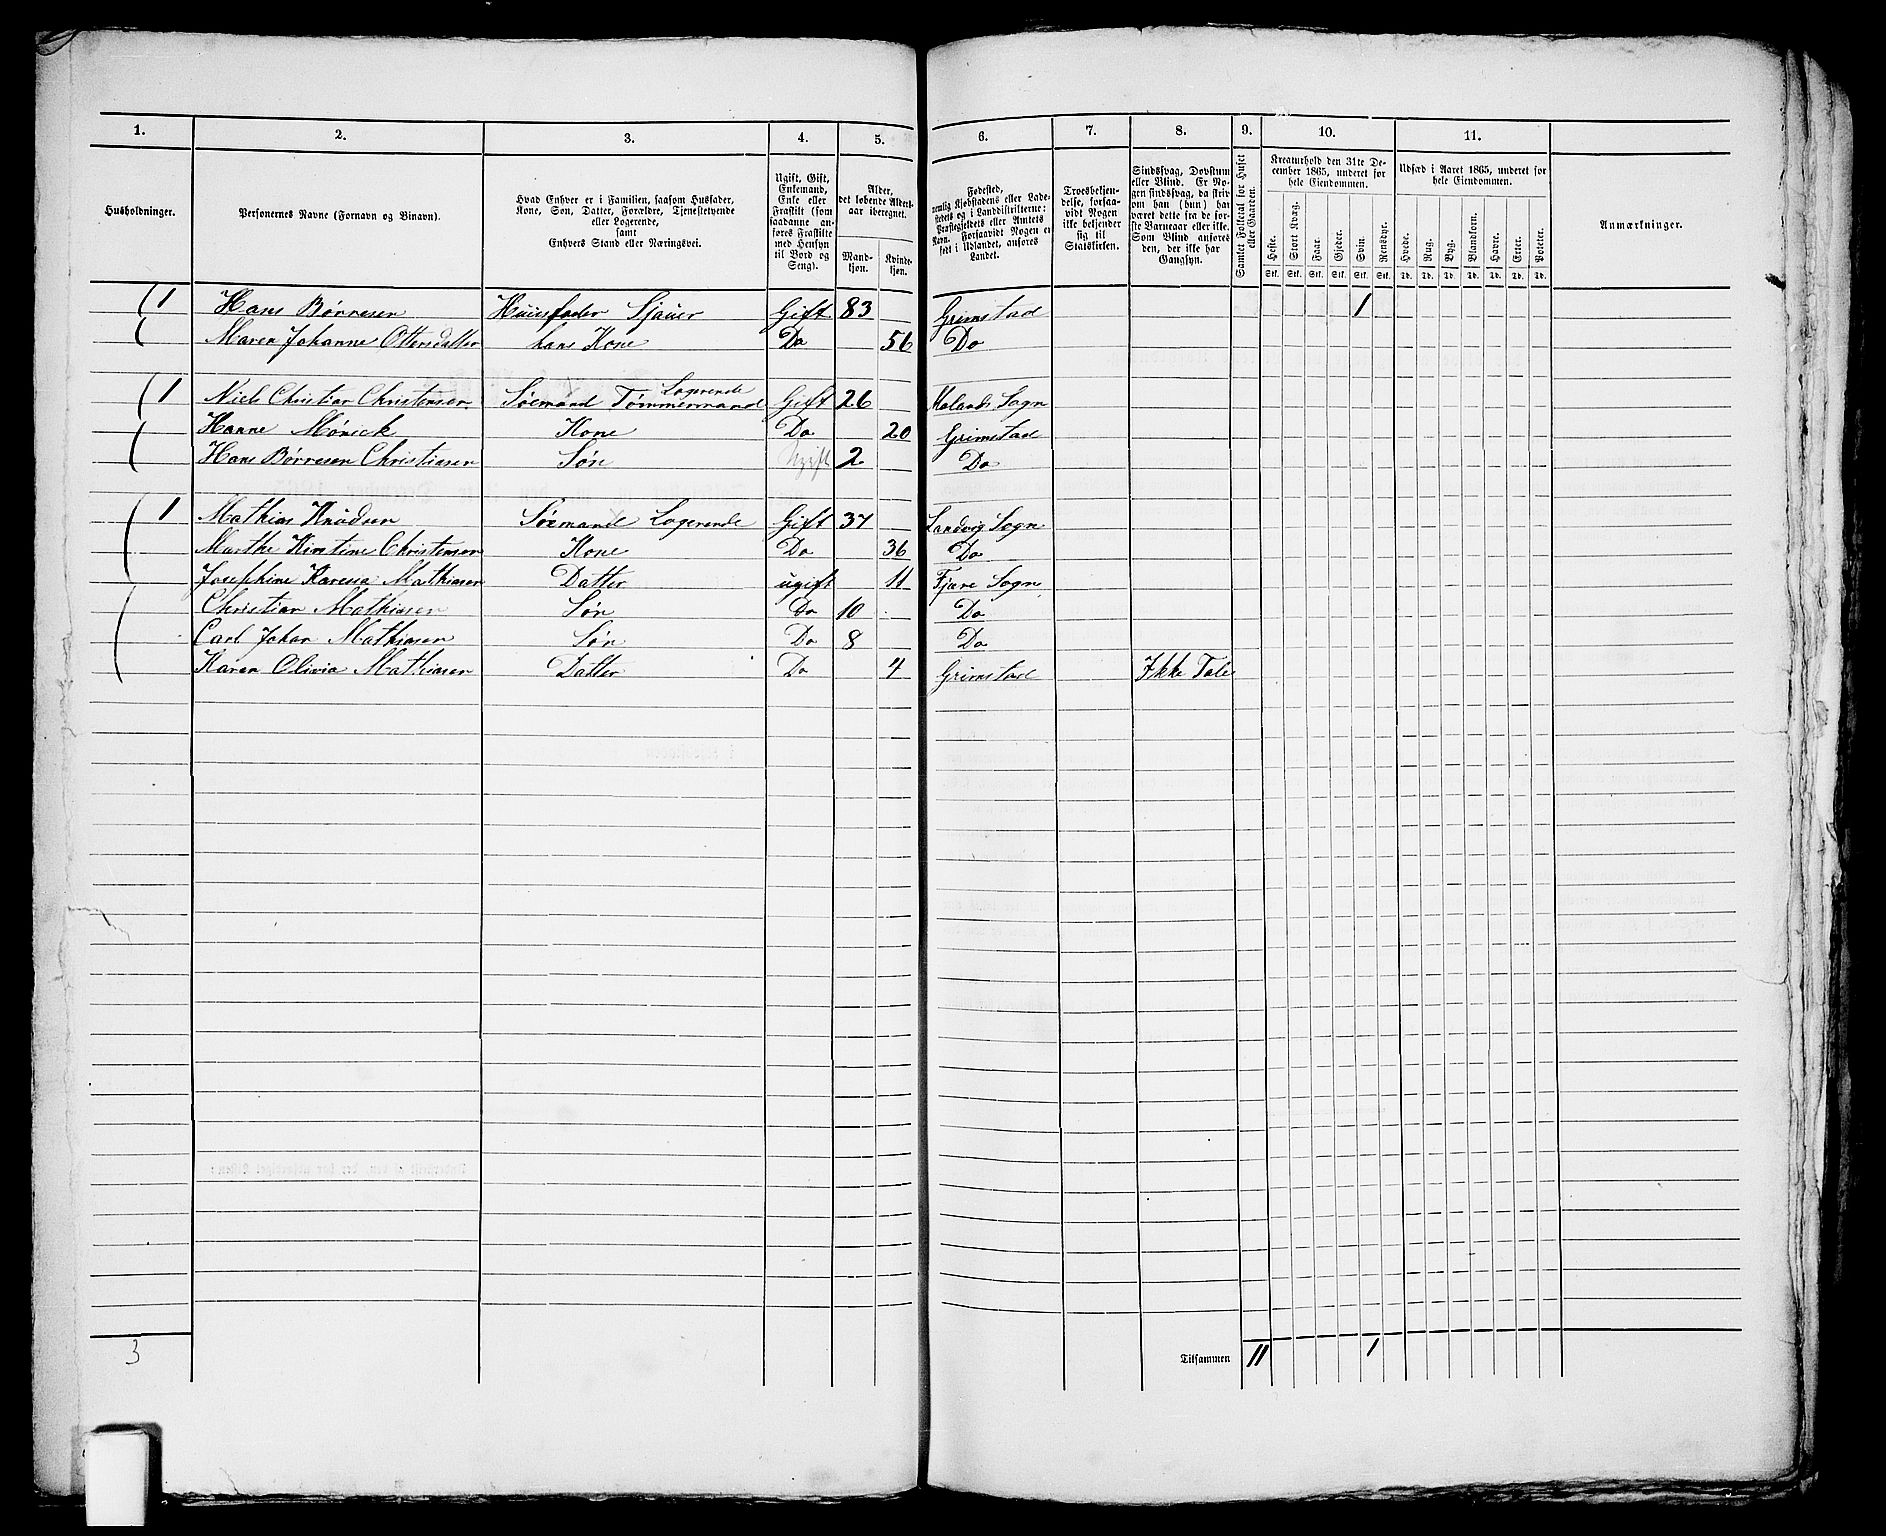 1. 2. 3. 4. 5. 6. 7. 8. 9. 10. 11.
Husholdninger.
Personernes Navne (Fornavn og Binavn).
Hvad Enhver er i Familien, saasom Husfader,
Kone, Søn, Datter, Forældre, Tjenestetyende
eller Logerende,
samt
Enhvers Stand eller Næringsvei.
Ugift, Gift,
Enkemand,
Enke eller
Fraskilt (som
saadanne an-
føres Fraskilte
med Hensyn
til Bord og
Seng).
Alder,
det løbende Alders-
aar iberegnet.
Mand-
kjøn.
Kvinde-
kjøn.
Fødested,
nemlig Kjøbstadens eller Lade-
stedets og i Landdistrikterne:
Præstegjeldets eller Amtets
Navn. Forsaavidt Nogen er
født i Udlandet, anføres
Landet.
Troesbekjen-
delse, forsaa-
vidt Nogen
ikke bekjender
sig til
Statskirken.
Sindssvag, Døvstum
eller Blind. Er No-
gen sindssvag, da skriv
om han (hun) har
været dette fra de før-
ste Barneaar eller ikke.
Som Blind anføres
den, der ikke har
Gangsyn.
Samlet Folketal for Huset
eller Gaarden.
Kreaturhold den 31te De-
cember 1865, underet for
hele Eiendommen.
Heste. Stort Kvæg. Faar. Gjeder. Svin. Rensdyr.
Stk. Stk. Stk. Stk. Stk. Stk.
Udsæd i Aaret 1865, underet for
hele Eiendommen.
Hvede. Rug. Byg. Blandkorn. Havre. Erter. Poteter.
Td. Td. Td. Td. Td. Td. Td.
Anmærkninger.
1 Hans Børresen Huusfader Sjauer Gift 83 Grimstad 1
Maren Johanne Ottersdatter hans Kone Do 56 Do
1 Niels Christian Christensen Sømand Tømmermand Logerende Gift 26 Holands Sogn
Hanne Mørick Kone Do 20 Grimstad
Hans Børresen Christiansen Søn Ugift 2 Do
1 Mathias Knudsen Sømand Logerende Gift 37 Landvig Sogn
Marthe Kirstine Christensen Kone Do 36 Do
Josephine Karena Mathiasen Datter ugift 11 Fjære Sogn
Christian Mathiasen Søn Do 10 Do
Carl Johan Mathiasen Søn Do 8 Do
Karen Olivia Mathiasen Datter Do 4 Grimstad Ikke Tale
3 Tilsammen 11 1